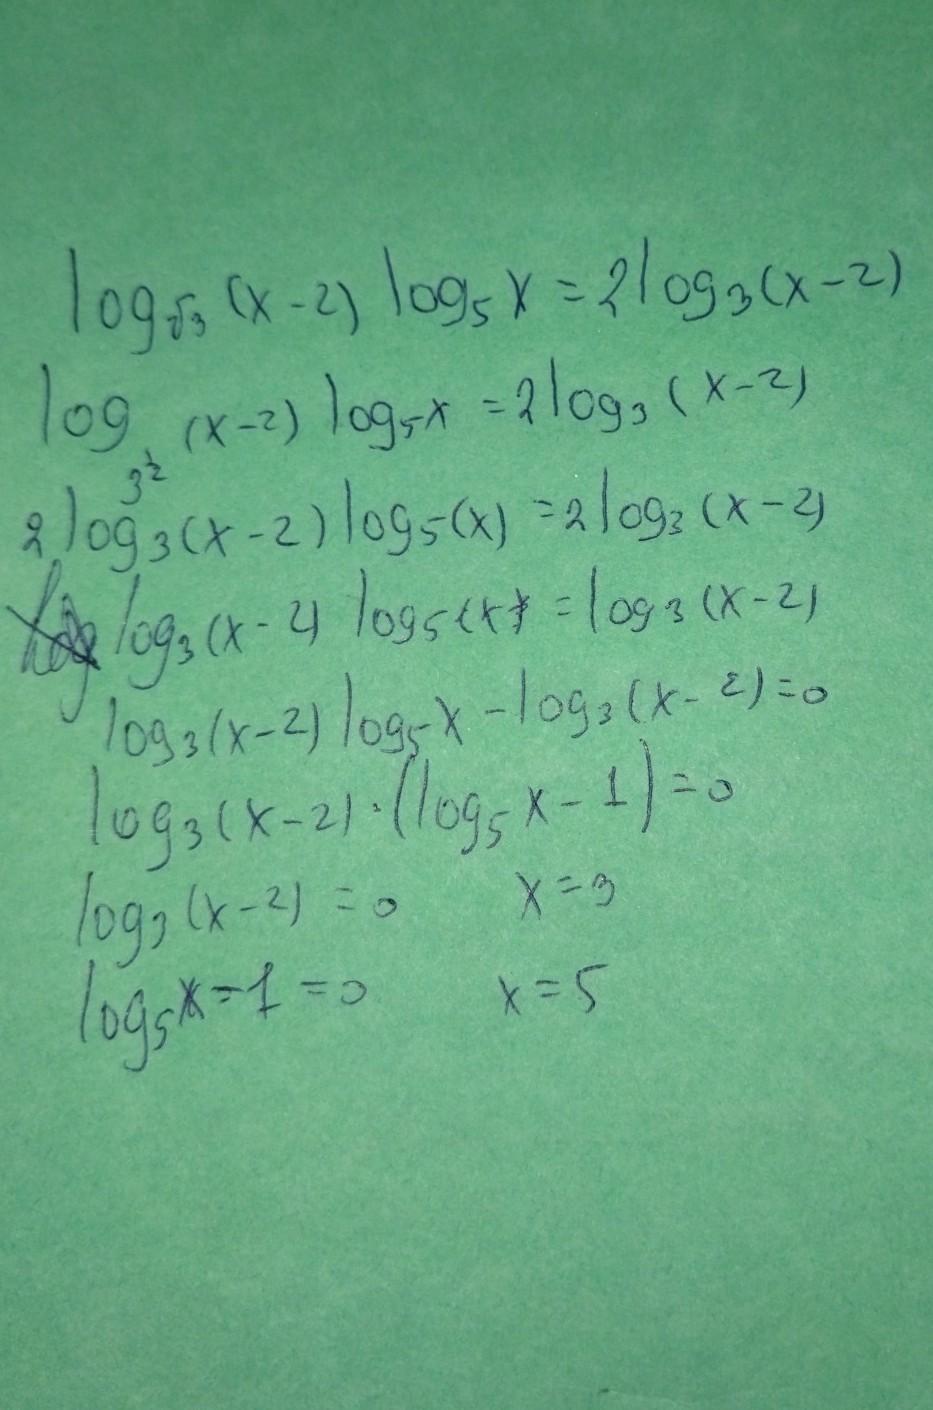 log√3 (x-2) log5 x = 2log3(x-2)
log3^½ (x-2) log5x = 2log3 (x-2)
2log3(x-2) log5(x) = 2log3 (x-2)
log3(x-2) log5(x) = log3(x-2)
log3(x-2) log5x - log3(x-2) = 0
log3(x-2)·(log5x-1) = 0
log3(x-2) = 0 x=3
log5x-1 = 0 x=5